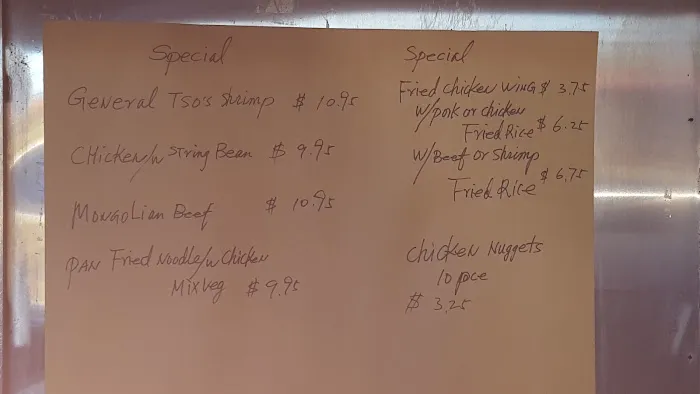 Special
General Tso's Shrimp $ 10.95
Chicken/w String Bean $ 9.95
Mongolian Beef $ 10.95
Pan Fried Noodle/w Chicken
Mix Veg $ 9.95
Special
Fried Chicken Wing $ 3.75
w/pork or chicken
Fried Rice $ 6.25
w/Beef or Shrimp
Fried Rice $ 6.75
Chicken Nuggets
10 pce
$ 3.25